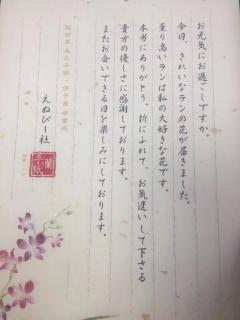 お元気にお過ごしですか。
今日、きれいなランの花が届きました。
薫り高いランは私の大好きな花です。
本当にありがとう。折にふれて、お気遣いして下さる
貴方の優しさに感謝しております。
またお会いできる日を楽しみにしております。
えぬびー社
蘭
手紙